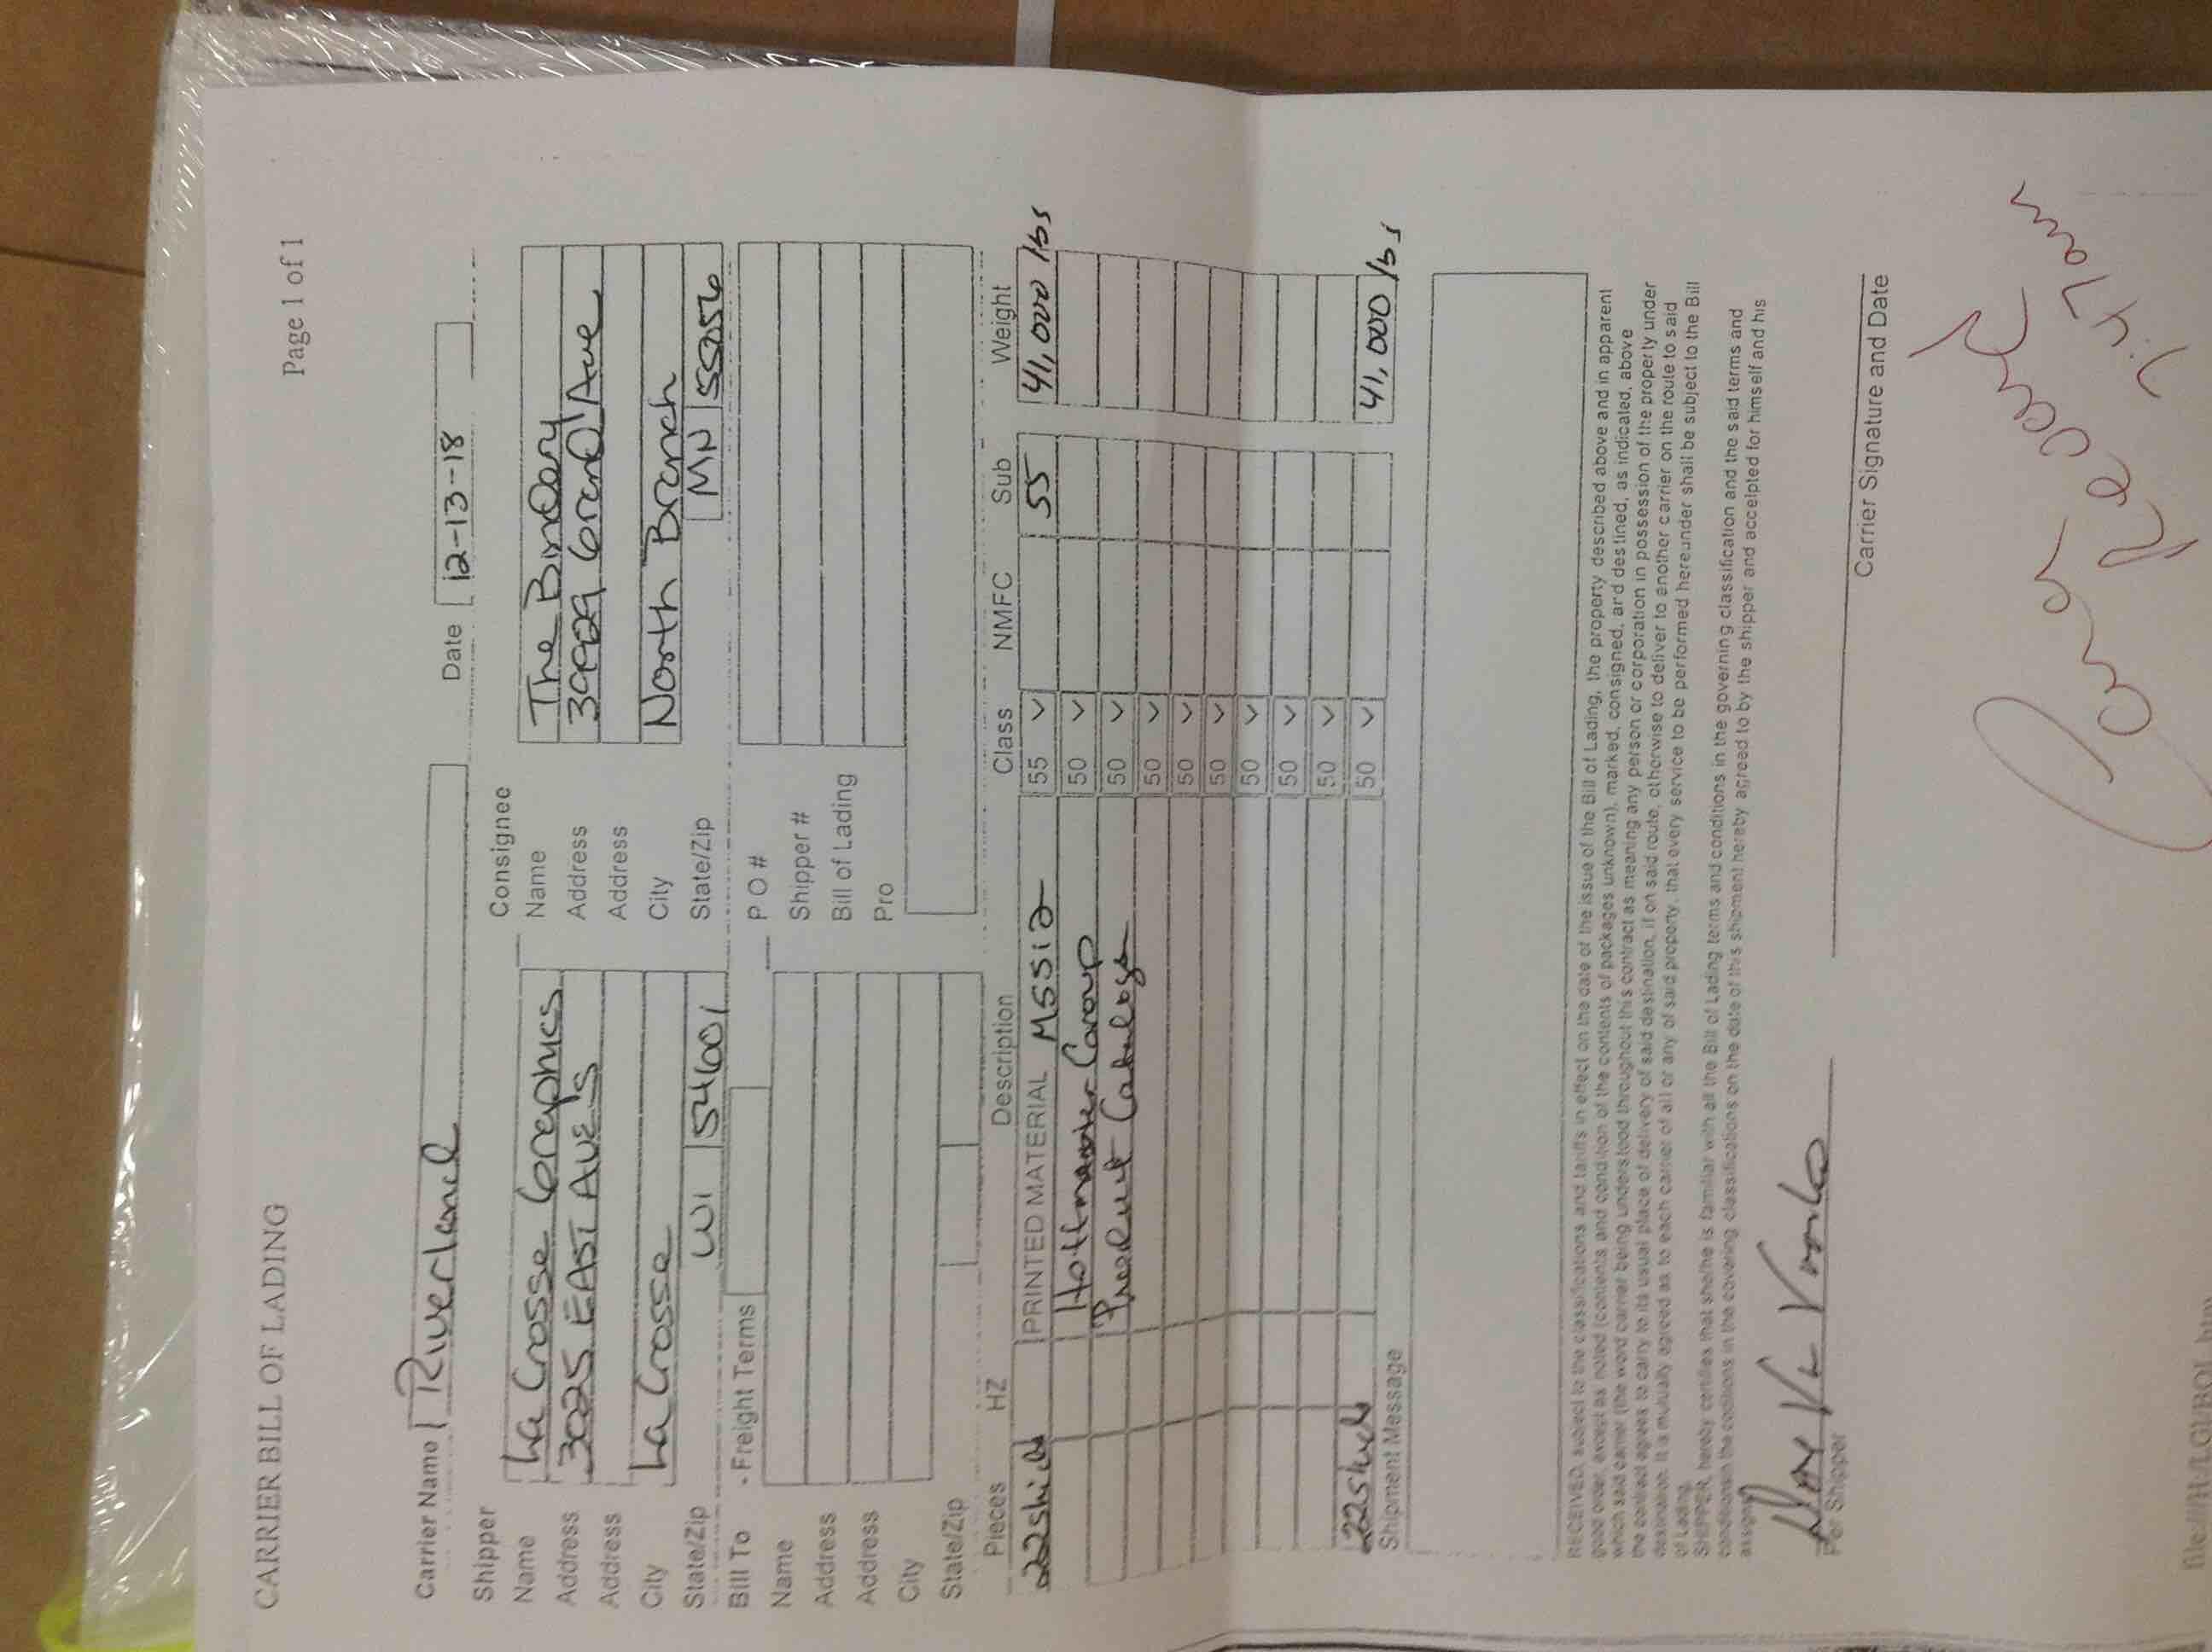 CARRIER BILL OF LADING Page 1 of 1
Carrier Name Riverland Date 12-13-18
Shipper Consignee
Name La Crosse Graphics Name The Bindery
Address 3025 EAST AVE S Address Grand Ave
Address Address
City La Crosse City North Branch
State/Zip WI 54601 State/Zip MN 55056
Bill To - Freight Terms P O #
Name Shipper #
Address Bill of Lading
Address Pro
City
State/Zip
Pieces HZ Description Class NMFC Sub Weight
22 skids PRINTED MATERIAL 55 55 41,000 lbs
Group 50
Product Catalogs 50
50
50
50
50
50
50
22 skids 50 41,000 lbs
Shipment Message
RECEIVED, subject to the classifications and tariffs in effect on the date of the issue of the Bill of Lading, the property described above and in apparent
good order, except as noted (contents and condition of the contents of packages unknown), marked, consigned, and destined, as indicated, above
which said carrier (the word carrier being understood throughout this contract as meaning any person or corporation in possession of the property under
the contract agrees to carry to its usual place of delivery of said destination, if on said route, otherwise to deliver to another carrier on the route to said
destination. It is mutually agreed as to each carrier of all or any of said property, that every service to be performed hereunder shall be subject to the Bill
of Lading.
SHIPPER, hereby certifies that she/he is familiar with all the Bill of Lading terms and conditions in the governing classification and the said terms and
conditions in the covering classifications on the date of this shipment hereby agreed to by the shipper and acceipted for himself and his
assigns
Per Shipper Carrier Signature and Date